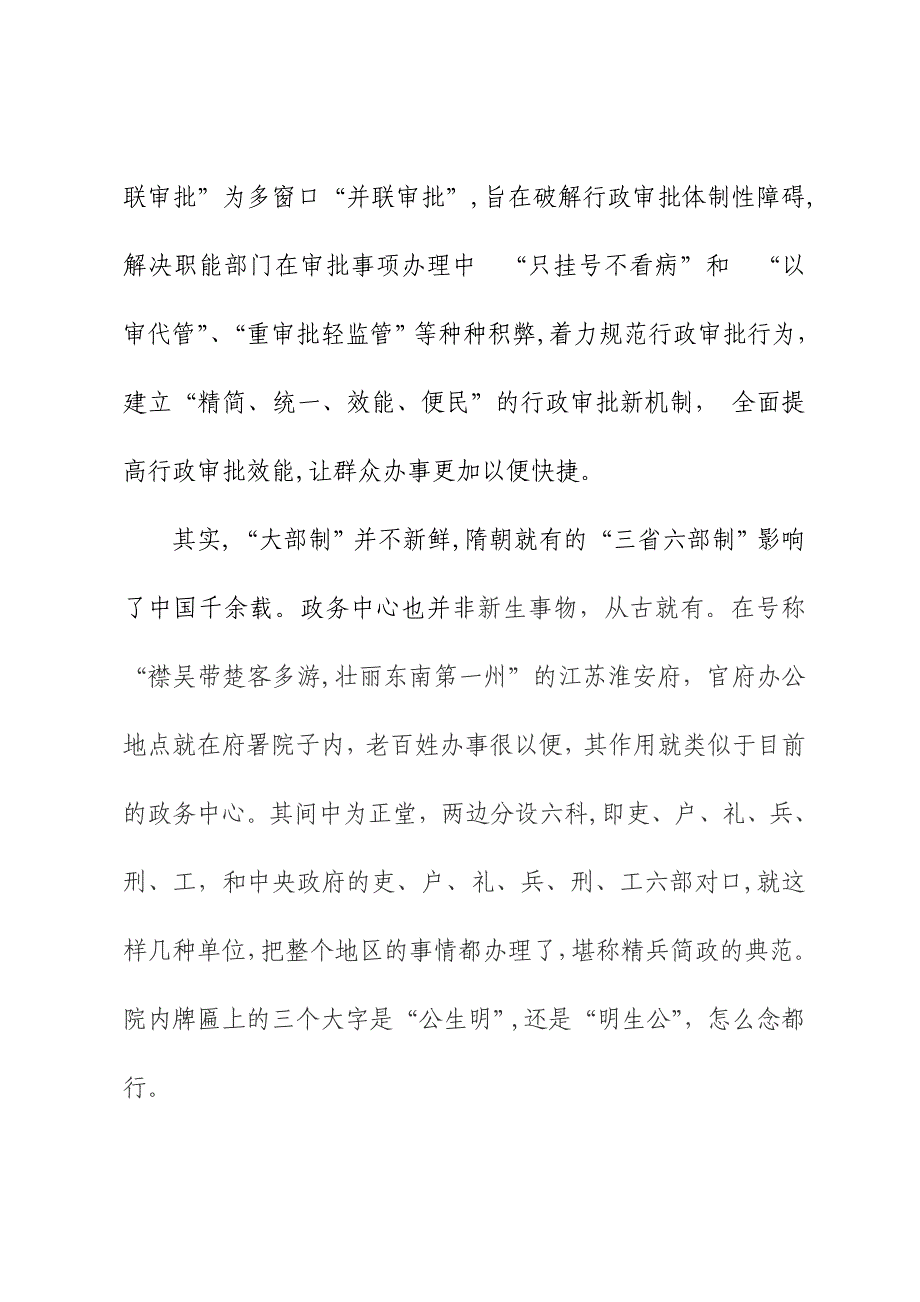 联审批”为多窗口“并联审批”,旨在破解行政审批体制性障碍,
解决职能部门在审批事项办理中 “只挂号不看病”和 “以
审代管”、“重审批轻监管”等种种积弊,着力规范行政审批行为,
建立“精简、统一、效能、便民”的行政审批新机制， 全面提
高行政审批效能,让群众办事更加以便快捷。
其实，“大部制”并不新鲜,隋朝就有的“三省六部制”影响
了中国千余载。政务中心也并非新生事物，从古就有。在号称
“襟吴带楚客多游,壮丽东南第一州”的江苏淮安府，官府办公
地点就在府署院子内，老百姓办事很以便，其作用就类似于目前
的政务中心。其间中为正堂，两边分设六科,即吏、户、礼、兵、
刑、工，和中央政府的吏、户、礼、兵、刑、工六部对口,就这
样几种单位,把整个地区的事情都办理了,堪称精兵简政的典范。
院内牌匾上的三个大字是“公生明”,还是“明生公”，怎么念都
行。